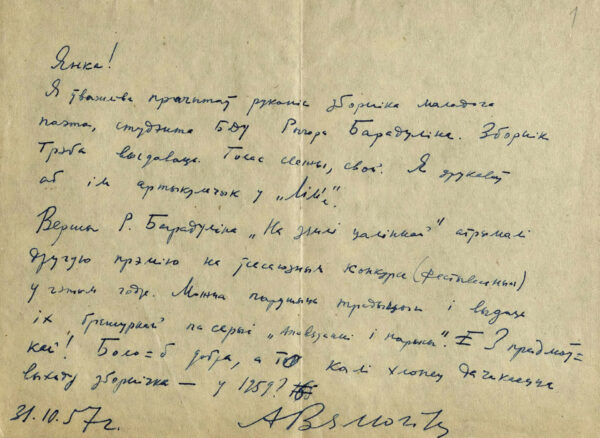 1
Янка!
Я ўважліва прачытаў рукапіс зборніка маладога
паэта, студэнта БДУ Рыгора Барадуліна. Зборнік
Трэба выдаваць. Голас свежы, свой. Я друкаваў
аб ім артыкульчык у „ЛіМ'е“.
Вершы Р. Барадуліна „На зямлі цаліннай“ атрымалі
другую прэмію на ўсесаюзным конкурсе (фестывальным)
у гэтым годзе. Можна парушыць традыцыю і выдаць
іх „брашуркай“ па серыі „Апавяданні і нарысы“. І з прадмоў=
кай! Было=б добра, а то калі хлопец дачакаецца
выхаду зборнічка — у 1959?
31.10.57 г.